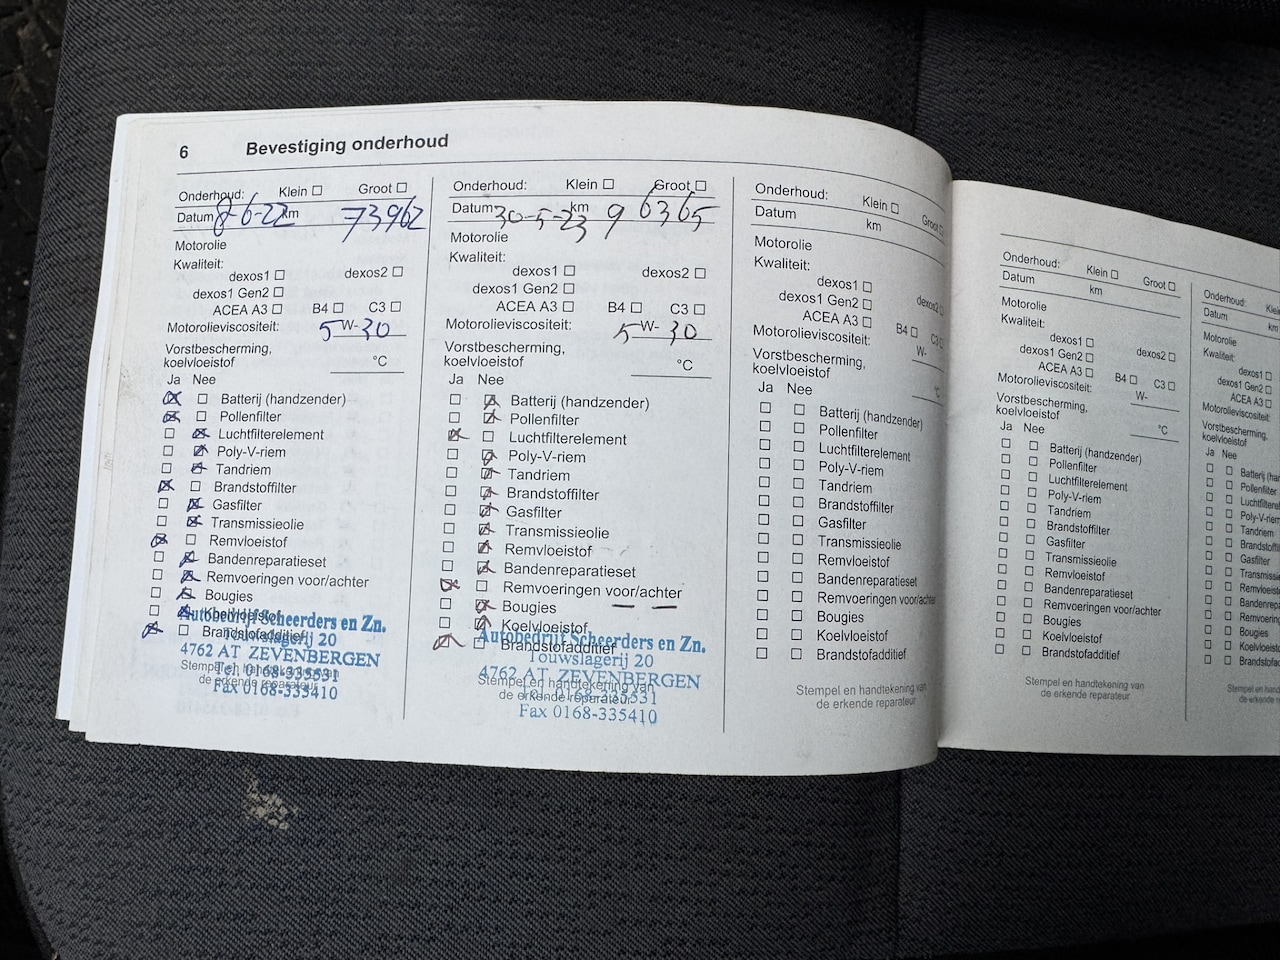 6 Bevestiging onderhoud
Onderhoud: Klein ☐ Groot ☐
Datum 8-6-22 km 73962
Motorolie
Kwaliteit:
dexos1 ☐ dexos2 ☐
dexos1 Gen2 ☐
ACEA A3 ☐ B4 ☐ C3 ☐
Motorolieviscositeit: 5 W- 30
Vorstbescherming,
koelvloeistof °C
Ja Nee
☒ ☐ Batterij (handzender)
☒ ☐ Pollenfilter
☐ ☒ Luchtfilterelement
☐ ☒ Poly-V-riem
☐ ☒ Tandriem
☒ ☐ Brandstoffilter
☐ ☒ Gasfilter
☐ ☒ Transmissieolie
☒ ☐ Remvloeistof
☐ ☒ Bandenreparatieset
☐ ☒ Remvoeringen voor/achter
☐ ☒ Bougies
☐ ☒ Koelvloeistof
☒ ☐ Brandstofadditief
Autobedrijf Scheerders en Zn.
Touwslagerij 20
4762 AT ZEVENBERGEN
Tel. 0168-335531
Fax 0168-335410
Stempel en handtekening van
de erkende reparateur
Onderhoud: Klein ☐ Groot ☐
Datum 30-5-23 km 96365
Motorolie
Kwaliteit:
dexos1 ☐ dexos2 ☐
dexos1 Gen2 ☐
ACEA A3 ☐ B4 ☐ C3 ☐
Motorolieviscositeit: 5 W- 30
Vorstbescherming,
koelvloeistof °C
Ja Nee
☐ ☒ Batterij (handzender)
☐ ☒ Pollenfilter
☒ ☐ Luchtfilterelement
☐ ☒ Poly-V-riem
☐ ☒ Tandriem
☐ ☒ Brandstoffilter
☐ ☒ Gasfilter
☐ ☒ Transmissieolie
☐ ☒ Remvloeistof
☐ ☒ Bandenreparatieset
☒ ☐ Remvoeringen voor/achter
☐ ☒ Bougies — —
☐ ☒ Koelvloeistof
☒ ☐ Brandstofadditief
Autobedrijf Scheerders en Zn.
Touwslagerij 20
4762 AT ZEVENBERGEN
Tel. 0168-335531
Fax 0168-335410
Stempel en handtekening van
de erkende reparateur
Onderhoud: Klein ☐ Groot ☐
Datum km
Motorolie
Kwaliteit:
dexos1 ☐ dexos2
dexos1 Gen2 ☐
ACEA A3 ☐ B4 ☐ C3 ☐
Motorolieviscositeit: W-
Vorstbescherming,
koelvloeistof °C
Ja Nee
☐ ☐ Batterij (handzender)
☐ ☐ Pollenfilter
☐ ☐ Luchtfilterelement
☐ ☐ Poly-V-riem
☐ ☐ Tandriem
☐ ☐ Brandstoffilter
☐ ☐ Gasfilter
☐ ☐ Transmissieolie
☐ ☐ Remvloeistof
☐ ☐ Bandenreparatieset
☐ ☐ Remvoeringen voor/achter
☐ ☐ Bougies
☐ ☐ Koelvloeistof
☐ ☐ Brandstofadditief
Stempel en handtekening van
de erkende reparateur
Onderhoud: Klein ☐ Groot ☐
Datum km
Motorolie
Kwaliteit:
dexos1 ☐ dexos2 ☐
dexos1 Gen2 ☐
ACEA A3 ☐ B4 ☐ C3 ☐
Motorolieviscositeit: W-
Vorstbescherming,
koelvloeistof °C
Ja Nee
☐ ☐ Batterij (handzender)
☐ ☐ Pollenfilter
☐ ☐ Luchtfilterelement
☐ ☐ Poly-V-riem
☐ ☐ Tandriem
☐ ☐ Brandstoffilter
☐ ☐ Gasfilter
☐ ☐ Transmissieolie
☐ ☐ Remvloeistof
☐ ☐ Bandenreparatieset
☐ ☐ Remvoeringen voor/achter
☐ ☐ Bougies
☐ ☐ Koelvloeistof
☐ ☐ Brandstofadditief
Stempel en handtekening van
de erkende reparateur
Onderhoud: Klei
Datum km
Motorolie
Kwaliteit:
dexos1 ☐
dexos1 Gen2 ☐
ACEA A3 ☐
Motorolieviscositeit:
Vorstbescherming,
koelvloeistof
Ja Nee
☐ ☐ Batterij (har
☐ ☐ Pollenfilter
☐ ☐ Luchtfilterel
☐ ☐ Poly-V-riem
☐ ☐ Tandriem
☐ ☐ Brandstoffilt
☐ ☐ Gasfilter
☐ ☐ Transmissie
☐ ☐ Remvloeisto
☐ ☐ Bandenrepa
☐ ☐ Remvoering
☐ ☐ Bougies
☐ ☐ Koelvloeisto
☐ ☐ Brandstofad
Stempel en hand
de erkende